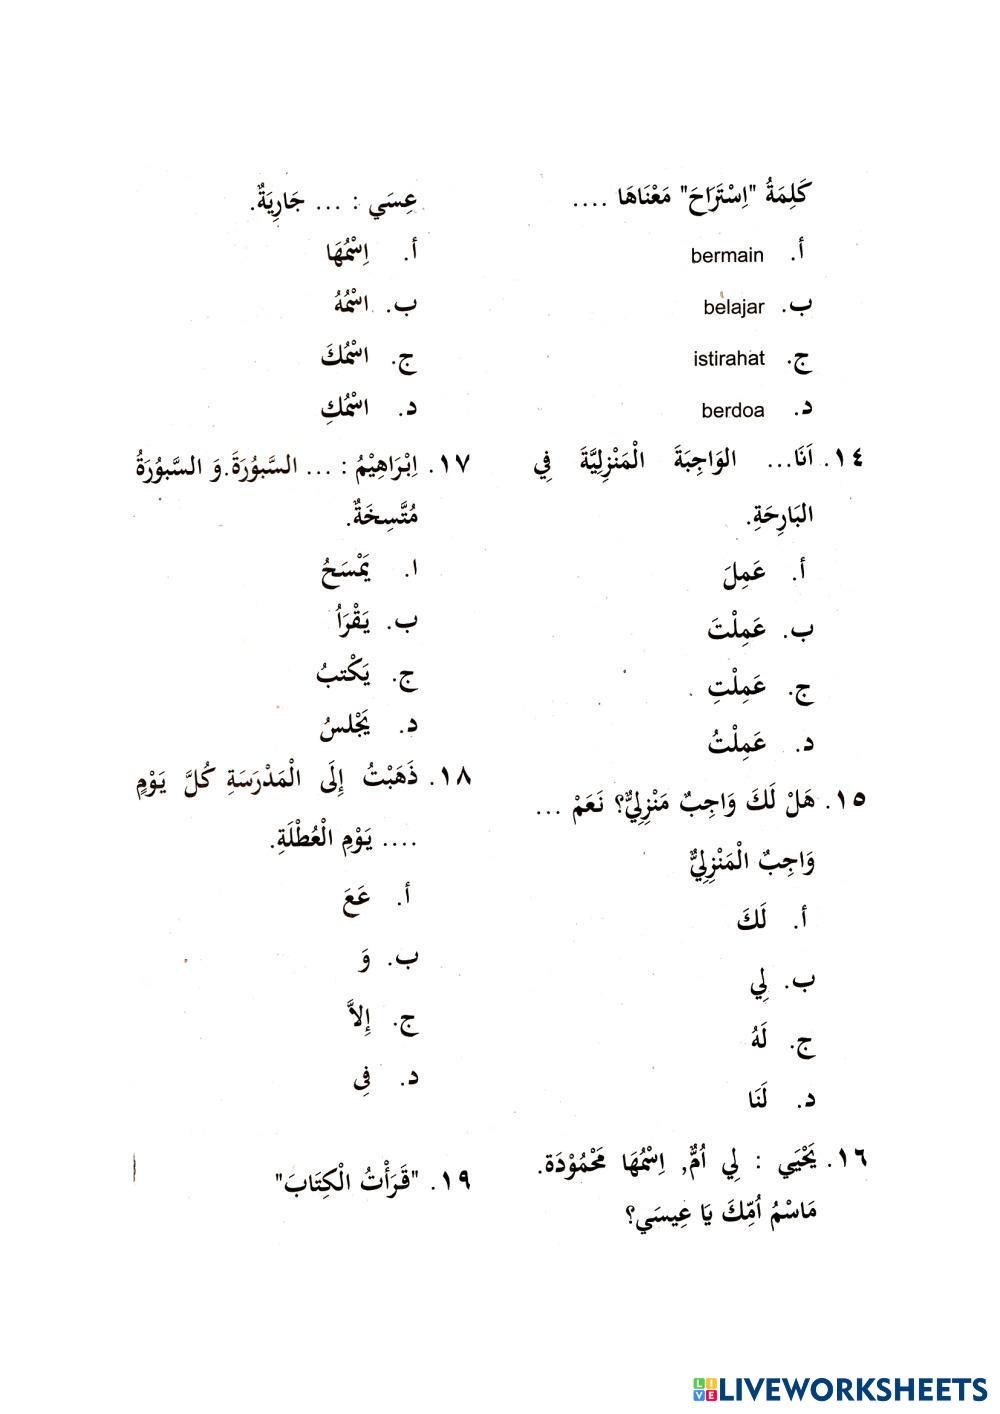 كَلِمَةُ "اِسْتَرَاحَ" مَعْنَاهَا ....
أ. bermain
ب. belajar
ج. istirahat
د. berdoa
١٤. اَنَا... الوَاجِبَةَ الْمَنْزِلِيَّةَ فِي
البَارِحَةِ.
أ. عَمِلَ
ب. عَمِلْتَ
ج. عَمِلْتِ
د. عَمِلْتُ
١٥. هَلْ لَكَ وَاجِبٌ مَنْزِلِيٌّ؟ نَعَمْ ...
وَاجِبٌ الْمَنْزِلِيٌّ
أ. لَكَ
ب. لِي
ج. لَهُ
د. لَنَا
١٦. يَحْيَي : لِي اُمٌّ, اِسْمُهَا مَحْمُوْدَة.
مَاسْمُ اُمِّكَ يَا عِيسَي؟
عِسَي : ... جَارِيَةٌ.
أ. اِسْمُهَا
ب. اسْمُهُ
ج. اسْمُكَ
د. اسْمُكِ
١٧. اِبْرَاهِيْمُ : ... السَّبُوْرَةَ.وَ السَّبُوْرَةُ
مُتَّسِخَةٌ.
ا. يَمْسَحُ
ب. يَقْرَاُ
ج. يَكْتبُ
د. يَجْلسُ
١٨. ذَهَبْتُ إِلَى الْمَدْرَسَةِ كُلَّ يَوْمٍ
.... يَوْمِ الْعُطْلَةِ.
أ. عَعَ
ب. وَ
ج. إِلاَّ
د. فِى
١٩. "قَرَأْتُ الْكِتَابَ"
LIVEWORKSHEETS